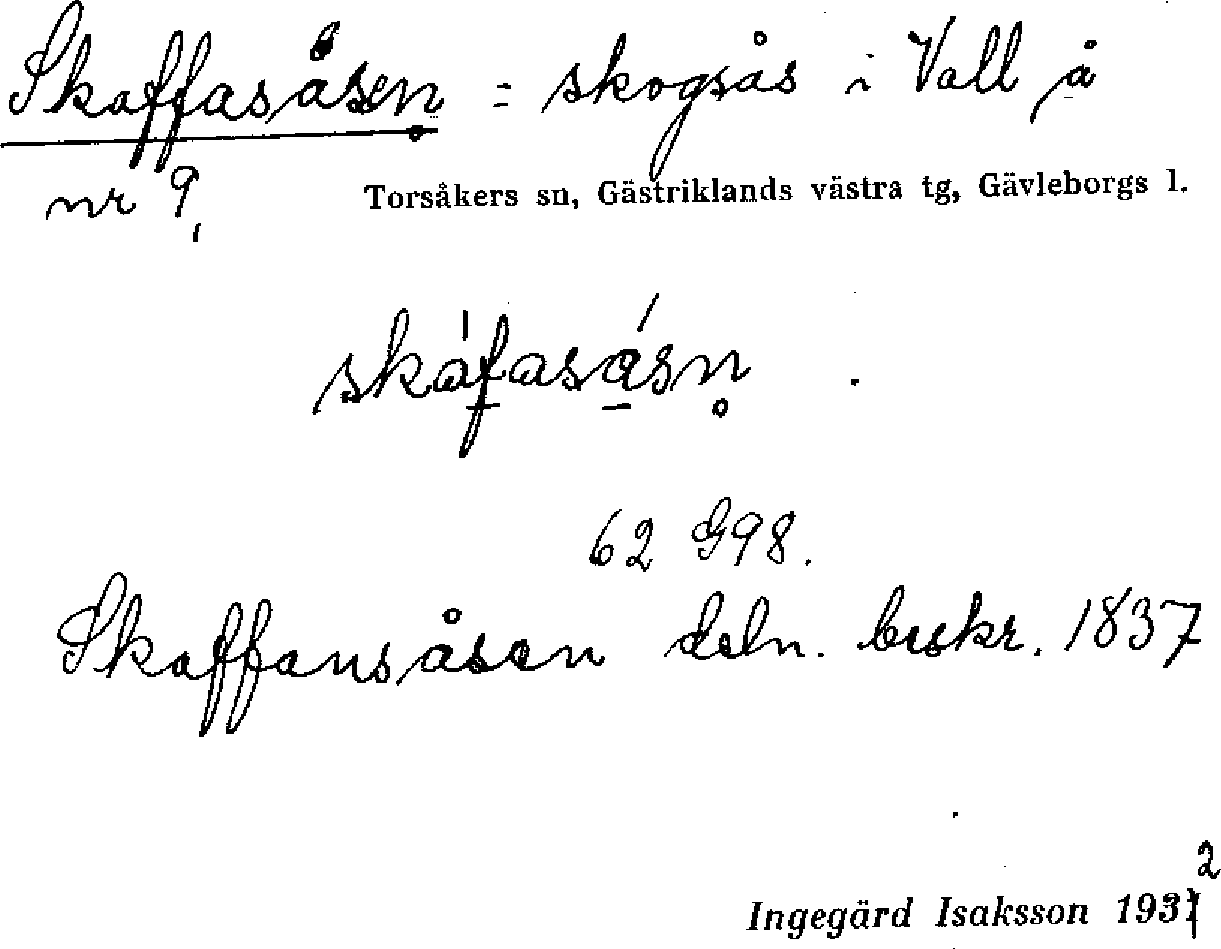 Skaffasåsen = skogsås i Vall å
nr 9,
Torsåkers sn, Gästriklands västra tg, Gävleborgs l.
skáfasásn̥
62 G98.
Skaffansåsen deln. beskr. 1837
Ingegärd Isaksson 1932